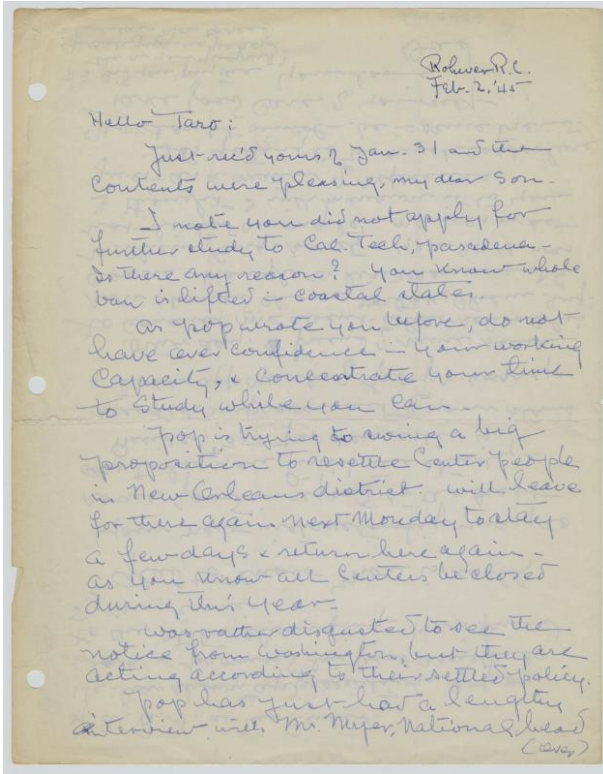 Rohwer R.C.
Feb. 2, '45
Hello Taro:
Just rec'd yours of Jan. 31 and the
contents were pleasing, my dear son.
I note you did not apply for
further study to Cal. Tech, pasadena -
Is there any reason? You know whole
ban is lifted in coastal states.
As pop wrote you before, do not
have over confidence in your working
capacity, & concentrate your time
to study while you can.
Pop is trying to swing a big
proposition to resettle Center people
in New Orleans district will leave
for there again next Monday to stay
a few days & return here again -
as you know all Centers be closed
during this year.
Was rather disgusted to see the
notice from Washington, but they are
acting according to their settled policy.
Pop has just had a lengthy
interview with Mr. Myer, National head
(over)